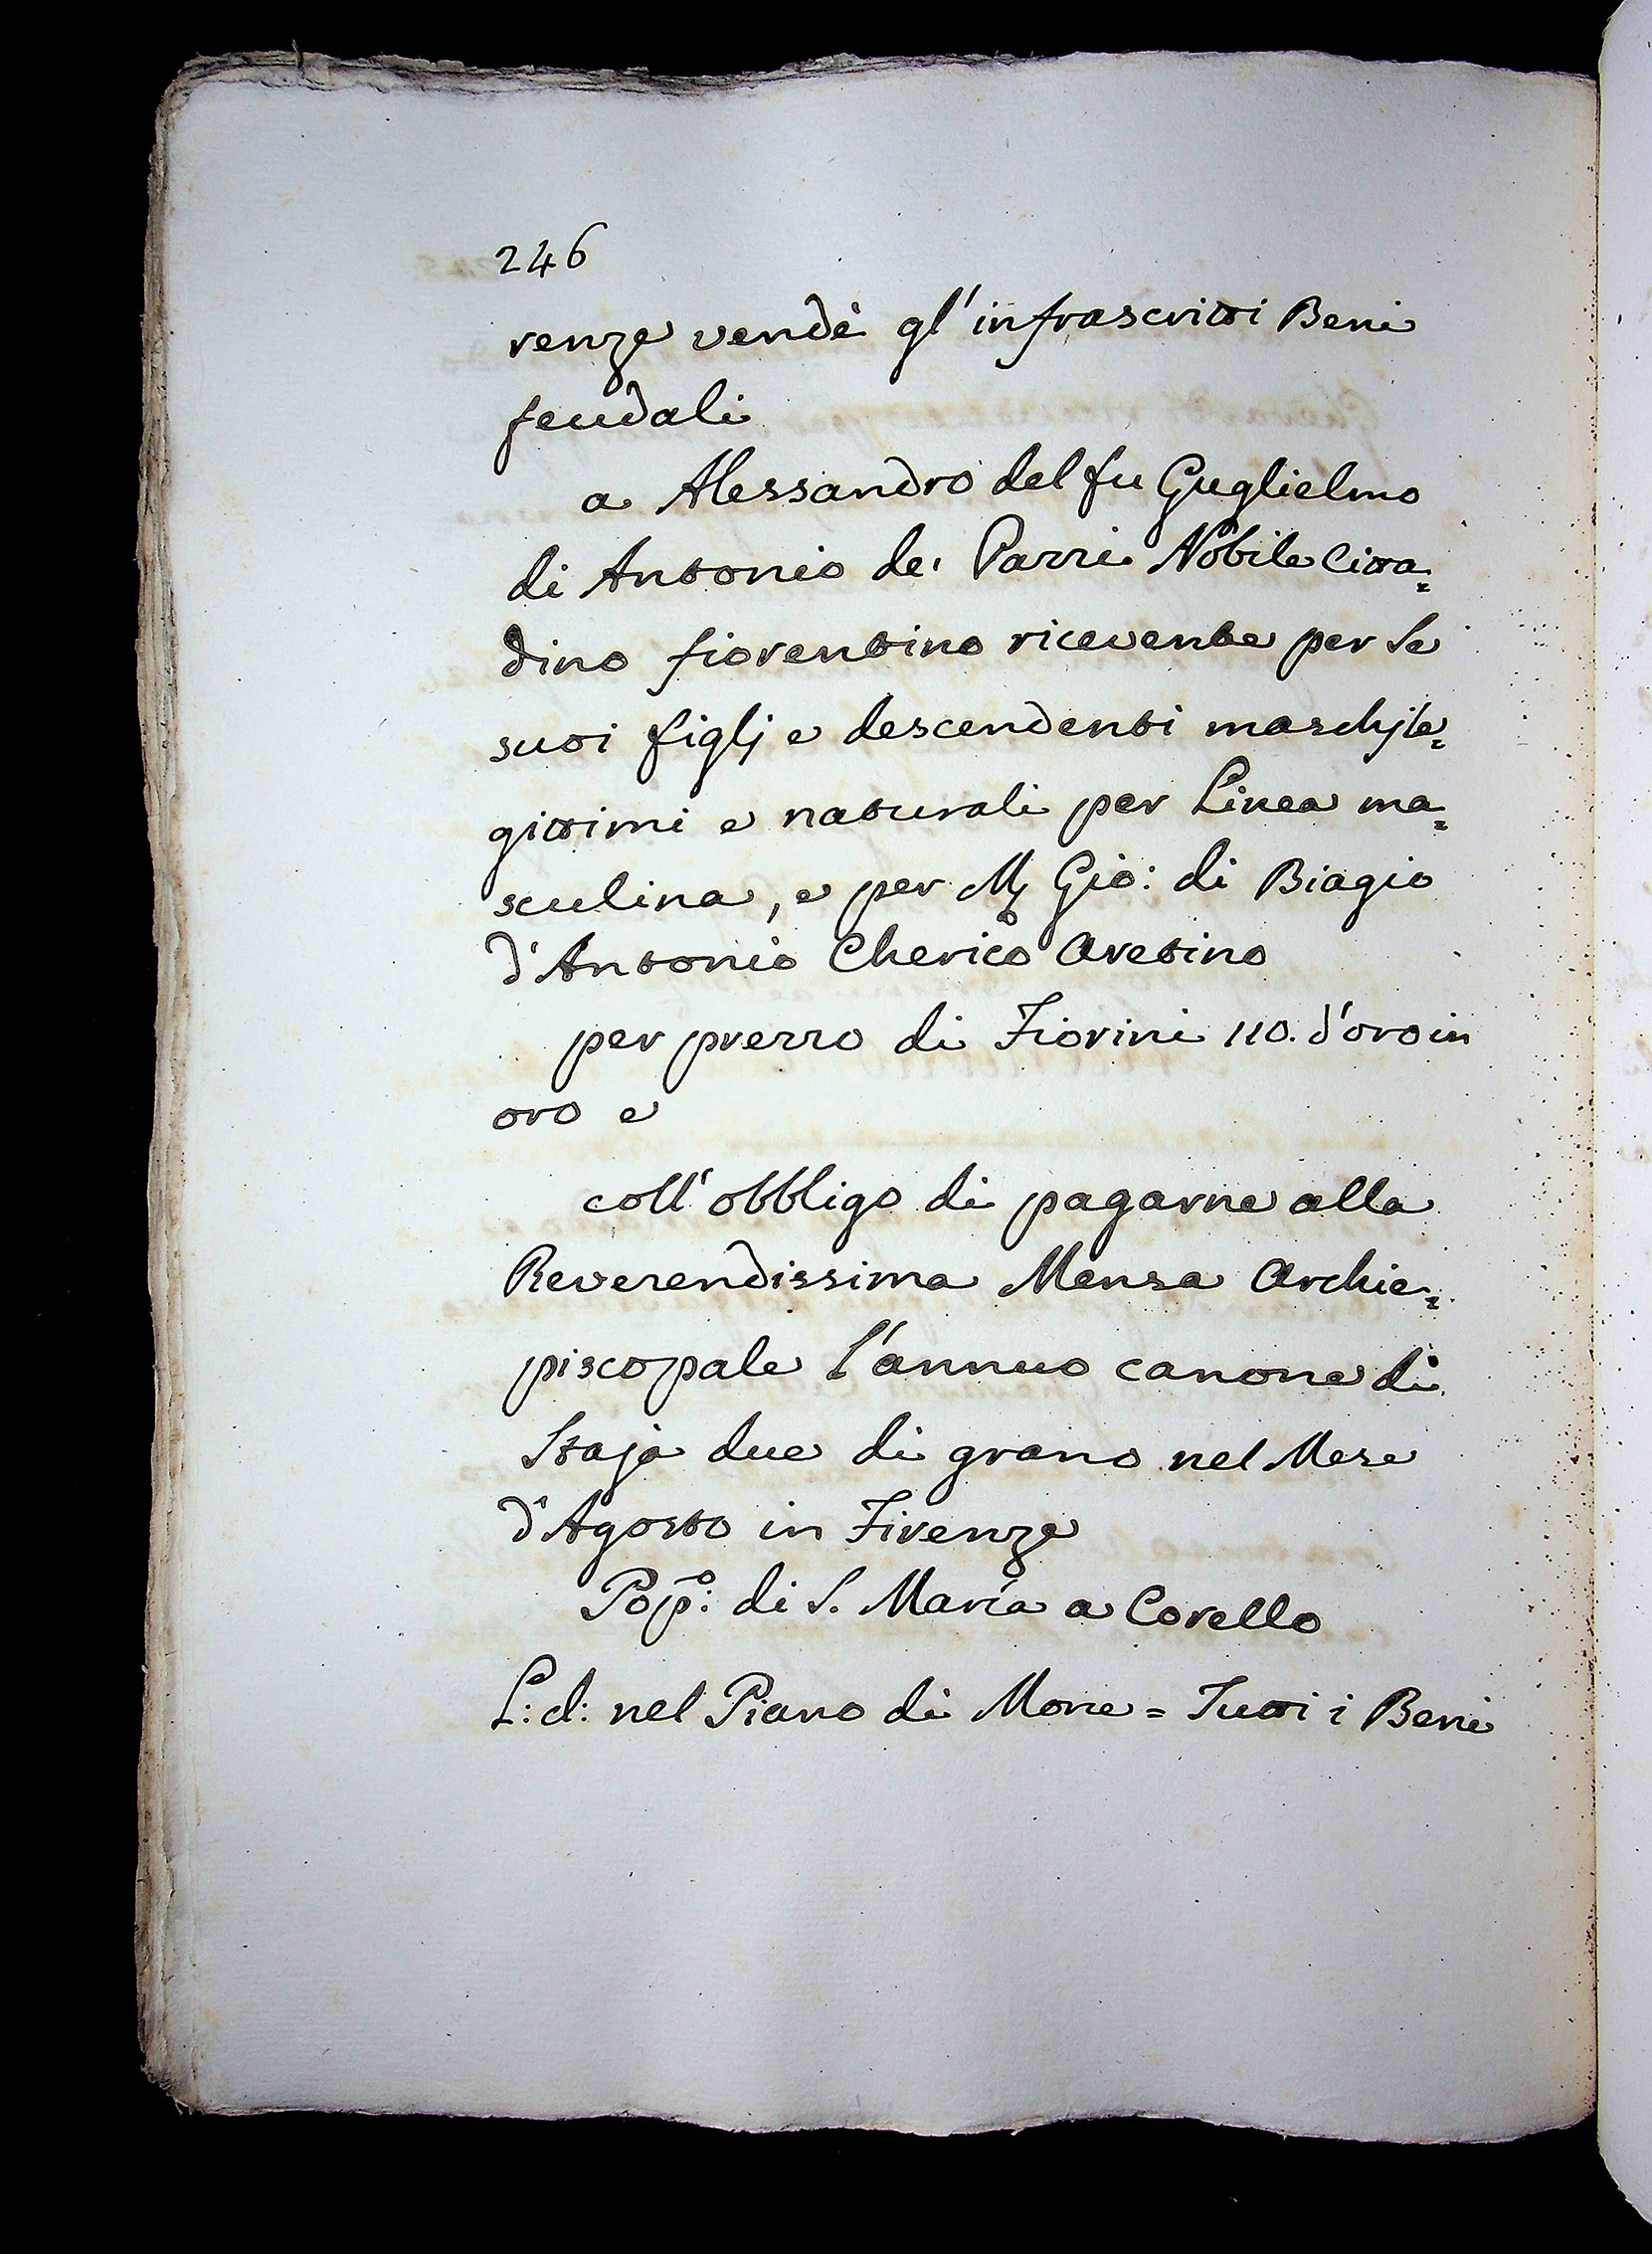 246
renze vendè gl'infrascritti Beni
feudali
a Alessandro del fu Guglielmo
di Antonio de' Pazzi Nobile Citta=
dino fiorentino ricevente per Se
suoi figlj e descendenti maschj le=
gittimi e naturali per Linea ma=
sculina, e per M Gio: di Biagio
d'Antonio Cherico Aretino
per prezzo di Fiorini 110. d'oro in
oro e
coll'obbligo di pagarne alla
Reverendissima Mensa Archie=
piscopale l'annuo canone di
Staja due di grano nel Mese
d'Agosto in Firenze
Popº: di S. Maria a Corello
L: d: nel Piano di Mone = Tutti i Beni